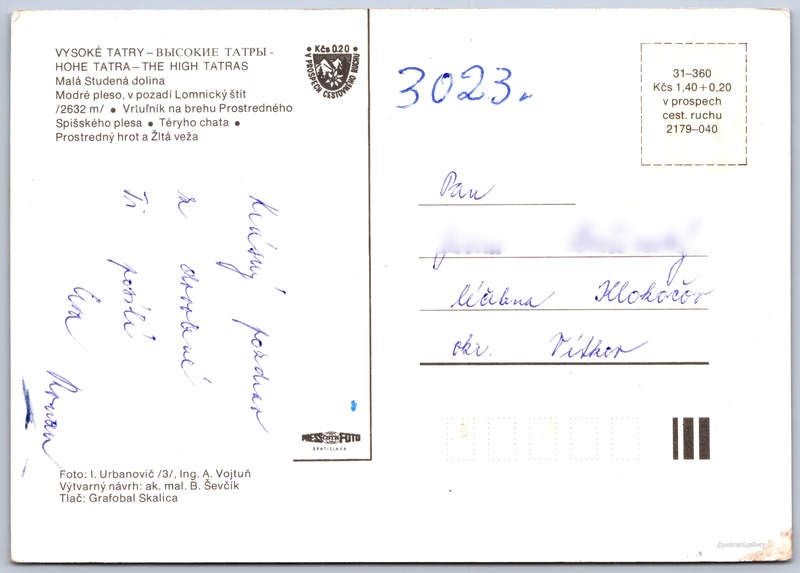 VYSOKÉ TATRY – ВЫСОКИЕ ТАТРЫ -
HOHE TATRA – THE HIGH TATRAS
Malá Studená dolina
Modré pleso, v pozadí Lomnický štít
/2632 m/ ● Vrtuľník na brehu Prostredného
Spišského plesa ● Téryho chata ●
Prostredný hrot a Žltá veža
• Kčs 0.20 •
V PROSPECH CESTOVNÉHO RUCHU
3023.
31–360
Kčs 1,40 + 0,20
v prospech
cest. ruchu
2179–040
Pan
léčebna Klokočov
okr. Vítkov
Krásný pozdrav
z dovolené
Ti posílá
Eva Roman
PRESSFOTO
BRATISLAVA
Foto: I. Urbanovič /3/, Ing. A. Vojtuň
Výtvarný návrh: ak. mal. B. Ševčík
Tlač: Grafobal Skalica
//postcard.gallery